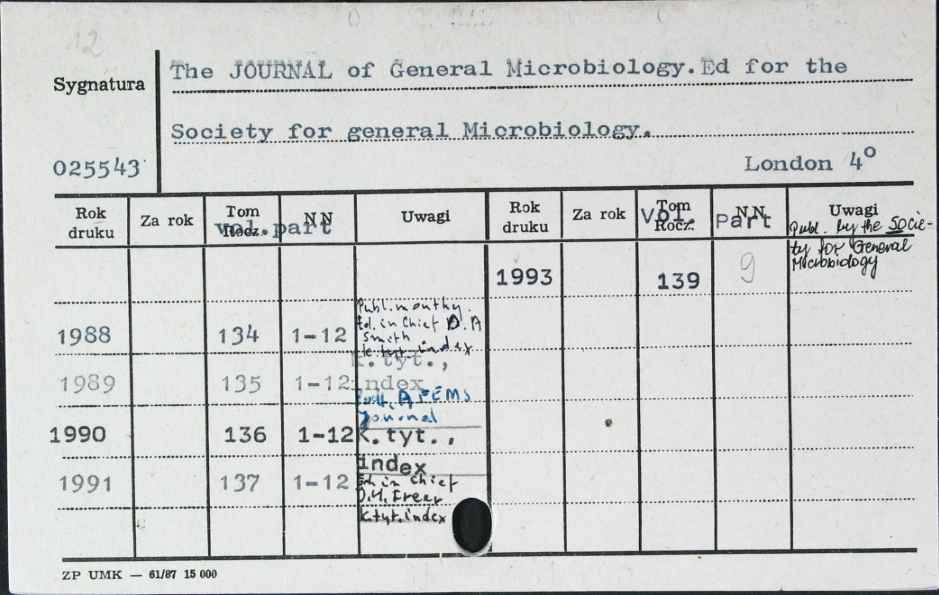 12
The JOURNAL of General Microbiology.Ed for the
Sygnatura
Society for general Microbiology.
025543
London 4º
Rok druku Za rok Tom Rocz. NN Uwagi Rok druku Za rok Tom Rocz. NN Uwagi
vol. part Vol. Part
Publ. by the Socie-
ty for General
Microbiology
1993 139 9
Publ. monthy
Ed. in Chief D. A
Smith
1988 134 1-12
k. tyt. index
K.tyt.,
1989 135 1-12 index
A FEMS
Journal
1990 136 1-12 K.tyt.,
index
Ed. in Chief
1991 137 1-12
k.tyt. index
ZP UMK — 61/87 15 000